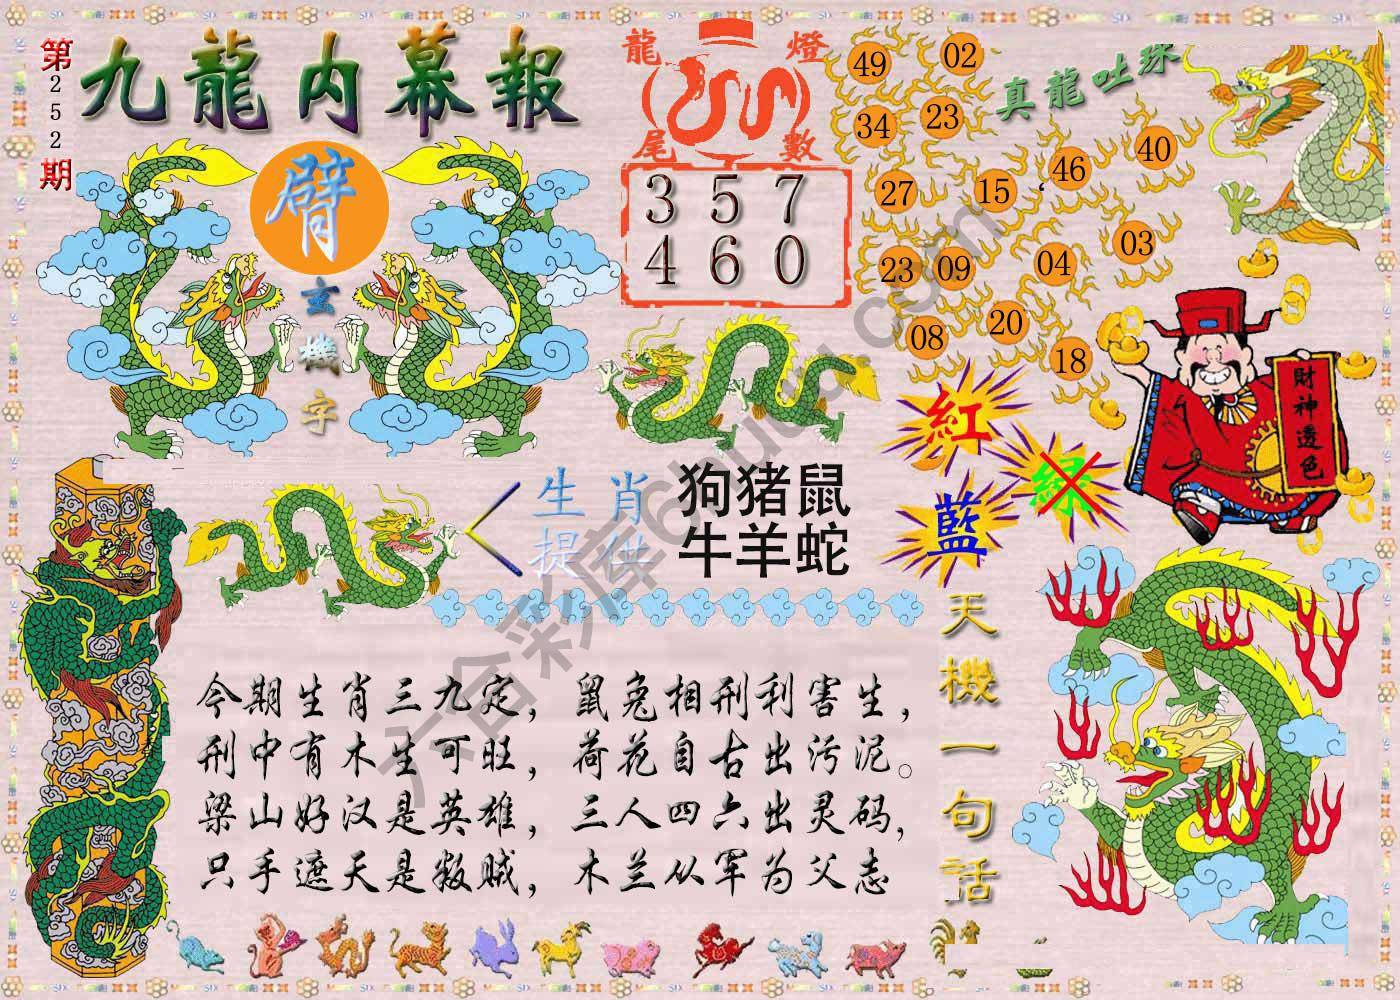 第252期
九龍内幕報
臂
玄機字
龍燈
尾數
3 5 7
4 6 0
真龍吐珠
49 02
34 23
27 15 46 40
23 09 04 03
08 20 18
財神透色
紅
藍
綠
生肖
提供
狗猪鼠
牛羊蛇
天機一句話
今期生肖三九定，鼠兔相刑利害生，
刑中有木生可旺，荷花自古出污泥。
梁山好汉是英雄，三人四六出灵码，
只手遮天是叛贼，木兰从军为父志
六合彩库6huuu.com